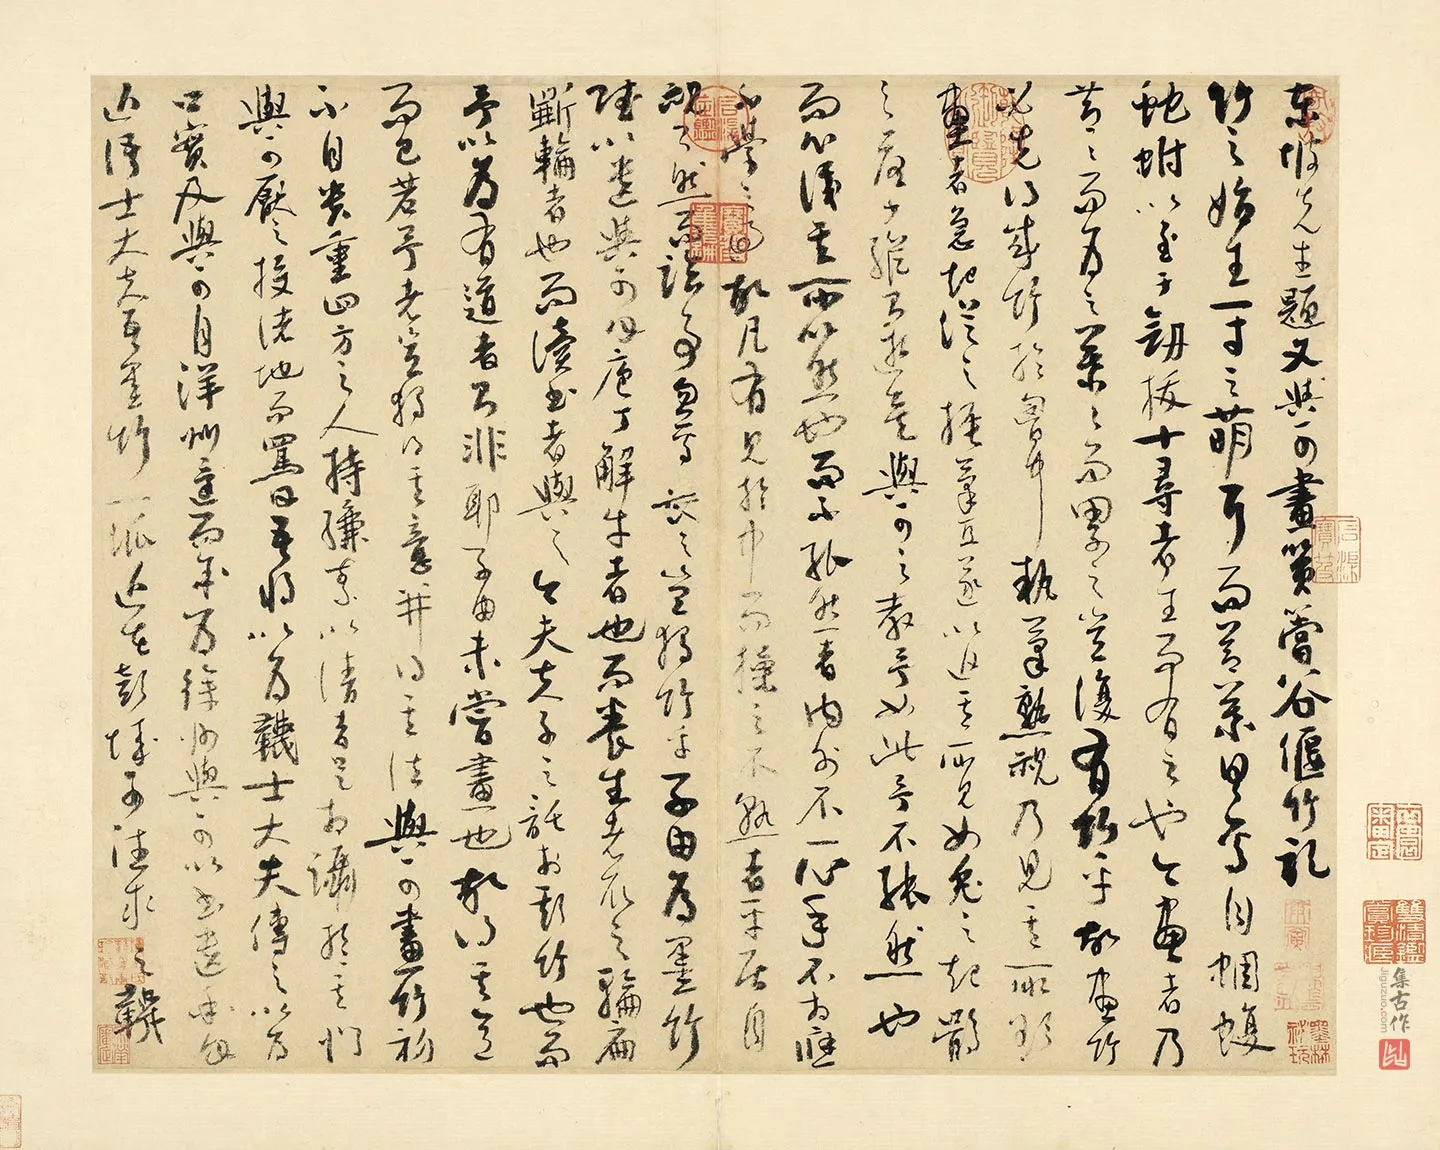 東坡先生題文與可畫篔簹谷偃竹記
竹之始生一寸之萌耳而節葉具焉自蜩蝮
蛇蚹以至于劒拔十尋者生而有之也今畫者乃
節〻而為之葉〻而累之豈復有竹乎故畫竹
必先得成竹於胸中執筆熟視乃見其所欲
畫者急起從之振筆直遂以追其所見如兔之起鶻
之落少縱則逝矣與可之教予如此予不能然也
而心識其所以然也而不能然者內外不一心手不相應
不學之過也故凡有見於中而操之不熟者平居自
視了然而臨事忽焉喪之豈獨竹乎子由為墨竹
賦以遺與可曰庖丁解牛者也而養生者取之輪扁
斲輪者也而讀書者與之今夫夫子之託於斯竹也而
予以為有道者則非耶子由未嘗畫也故得其意
而已若予者豈獨得其意并得其法與可畫竹初
不自貴重四方之人持縑素以請者足相躡於其門
與可厭之投諸地而罵曰吾將以為韈士大夫傳之以為
口實及與可自洋州還而余為徐州與可以書遺余曰
近語士大夫吾墨竹一派近在彭城可往求之韈
墨林祕玩
集古作
jiguzuo.com